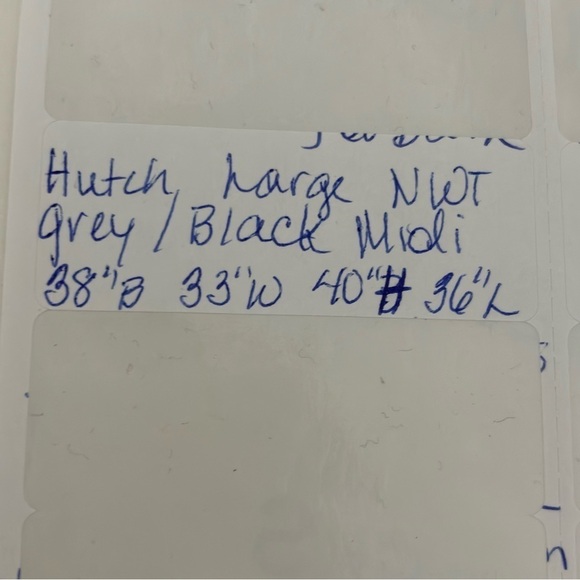 Hutch, Large NWT
grey / Black Midi
38"B 33"W 40"H 36"L
n